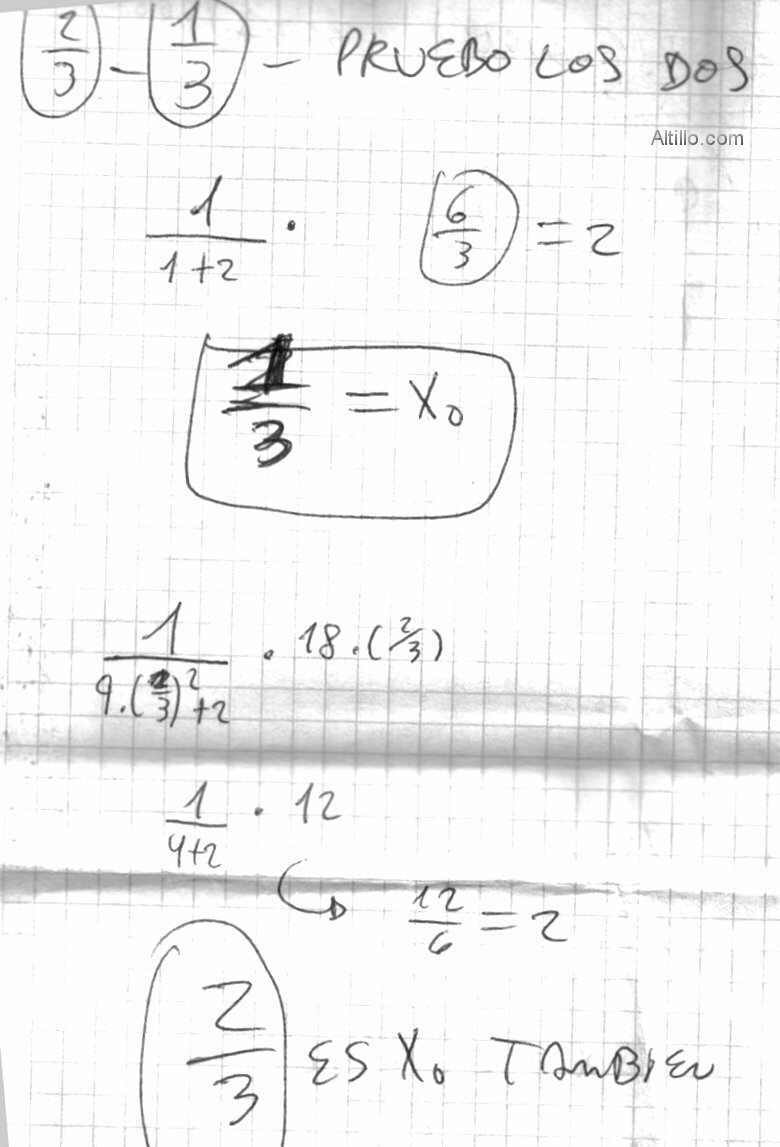 2/3 - 1/3 - PRUEBO LOS DOS
Altillo.com
1/(1+2) · 6/3 = 2
1/3 = X₀
1/(9·(2/3)²+2) · 18·(2/3)
1/(4+2) · 12
12/6 = 2
2/3 ES X₀ TAMBIEN